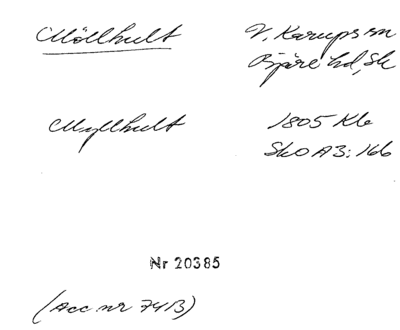 Möllhult V. Karups sn
Bjäre hd, Sk
Myllhult 1805 Kb
SkO A3: 166
Nr 20385
(Acc nr 74B)